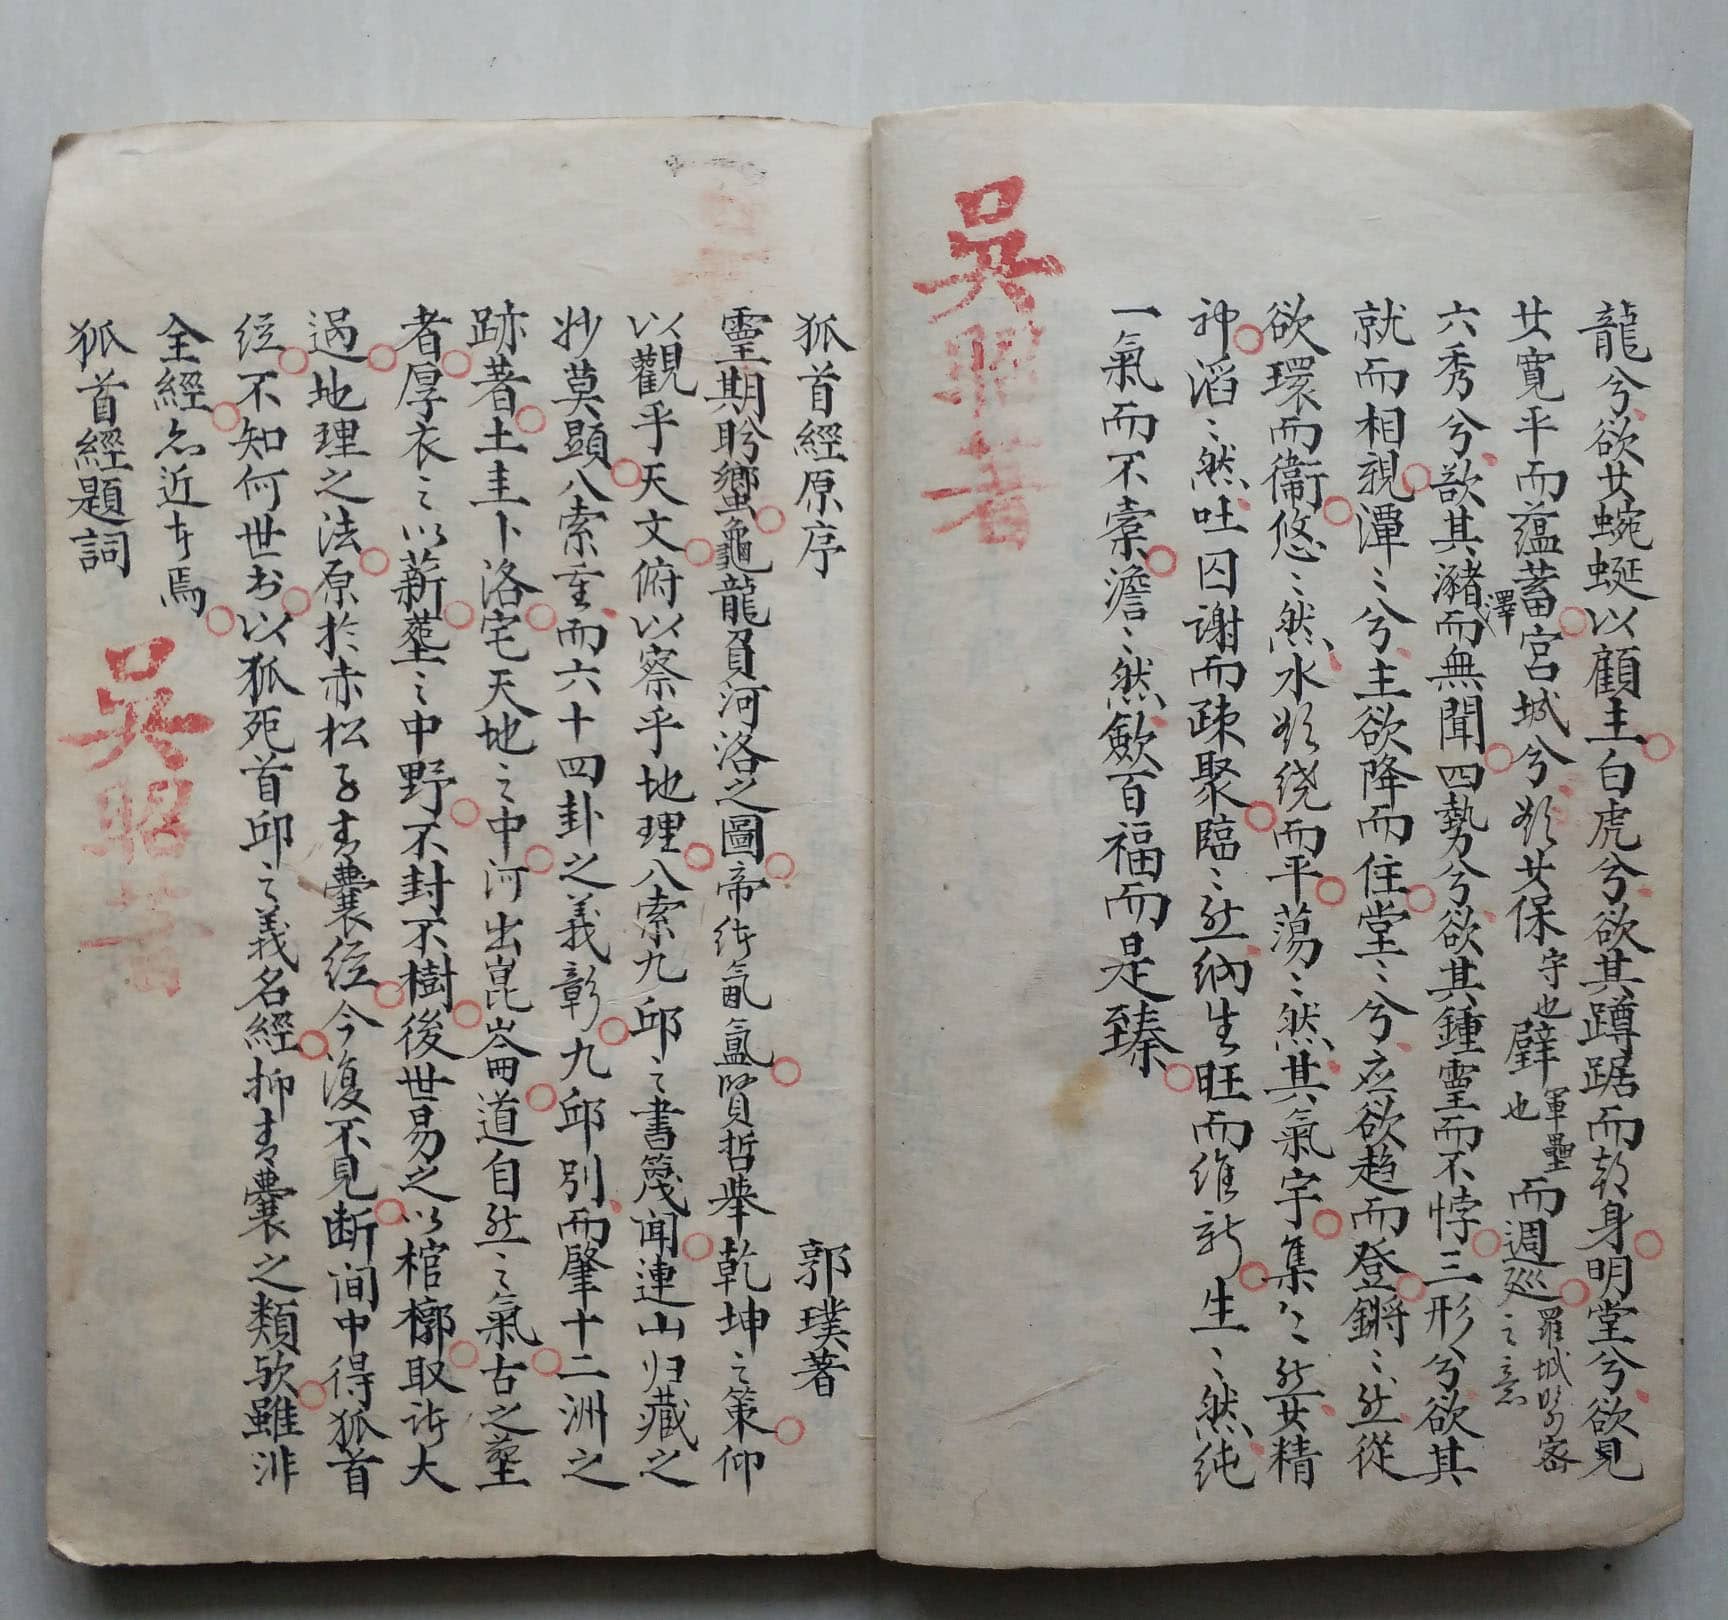 龍兮欲廿蜿蜒以顧主白虎兮欲其蹲踞而朝身明堂兮欲見
廿寛平而蕴蓄宮城兮欲廿保守也壁軍壘也而週巡羅城緊密之意
六秀兮欲其瀦澤而無聞四勢兮欲其鍾霊而不悖三形兮欲其
就而相親潭〻兮主欲降而住堂〻兮应欲趋而登鏘〻然從
欲環而衞悠〻然水欲绕而平蕩〻然其氣宇集〻然廿精
神滔〻然吐囚謝而疎聚臨〻然納生旺而维新生〻然纯
一氣而不紊澹〻然歛百福而是臻
吳昭著
狐首經原序 郭璞著
霊期盼蠁龜龍負河洛之圖帝氤氲賢哲举乾坤之策仰
以觀乎天文俯以察乎地理八索九邱之書篾闻連山归藏之
妙莫顕八索重而六十四卦之義彰九邱別而肇十二洲之
跡著土圭卜洛宅天地之中河出崑崙道自然之氣古之塟
者厚衣之以薪塟之中野不封不樹後世易之以棺槨取諸大
過地理之法原於赤松子青囊经今復不見断间中得狐首
经不知何世书以狐死首邱之義名經抑青囊之類欤雖非
全經亦近古焉
狐首經題詞
吳昭著